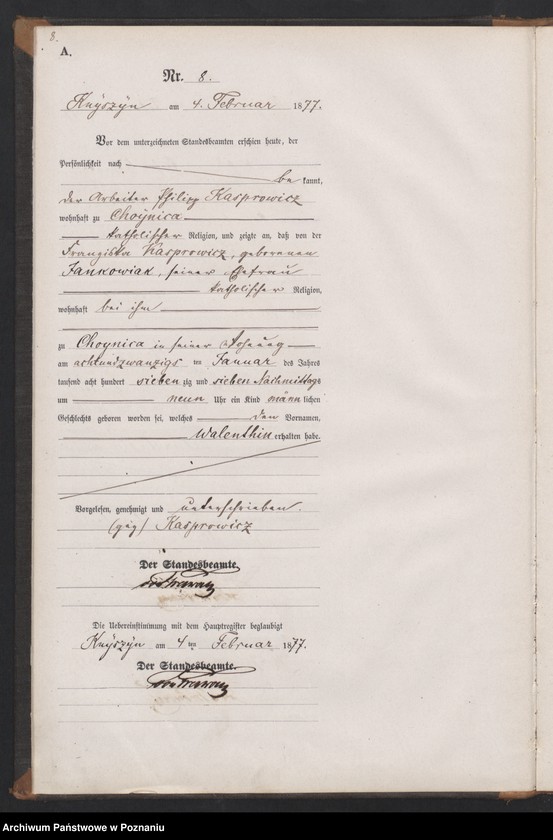 8.
A.
Nr. 8.
Knyszyn am 4. Februar 1877.
Vor dem unterzeichneten Standesbeamten erschien heute, der
Persönlichkeit nach
be kannt,
der Arbeiter Philipp Kasprowicz
wohnhaft zu Choynica
katholischer Religion, und zeigte an, daß von der
Franziska Kasprowicz, geborenen
Jankowiak, seiner Ehefrau
katholischer Religion,
wohnhaft bei ihm
zu Choynica in seiner Wohnung
am achtundzwanzigs ten Januar des Jahres
tausend acht hundert sieben zig und sieben Nachmittags
um neun Uhr ein Kind männ lichen
Geschlechts geboren worden sei, welches den Vornamen,
Walenthin erhalten habe.
Vorgelesen, genehmigt und unterschrieben.
(gez) Kasprowicz
Der Standesbeamte.
Die Uebereinstimmung mit dem Hauptregister beglaubigt
Knyszyn am 4 ten Februar 1877.
Der Standesbeamte.
Archiwum Państwowe w Poznaniu